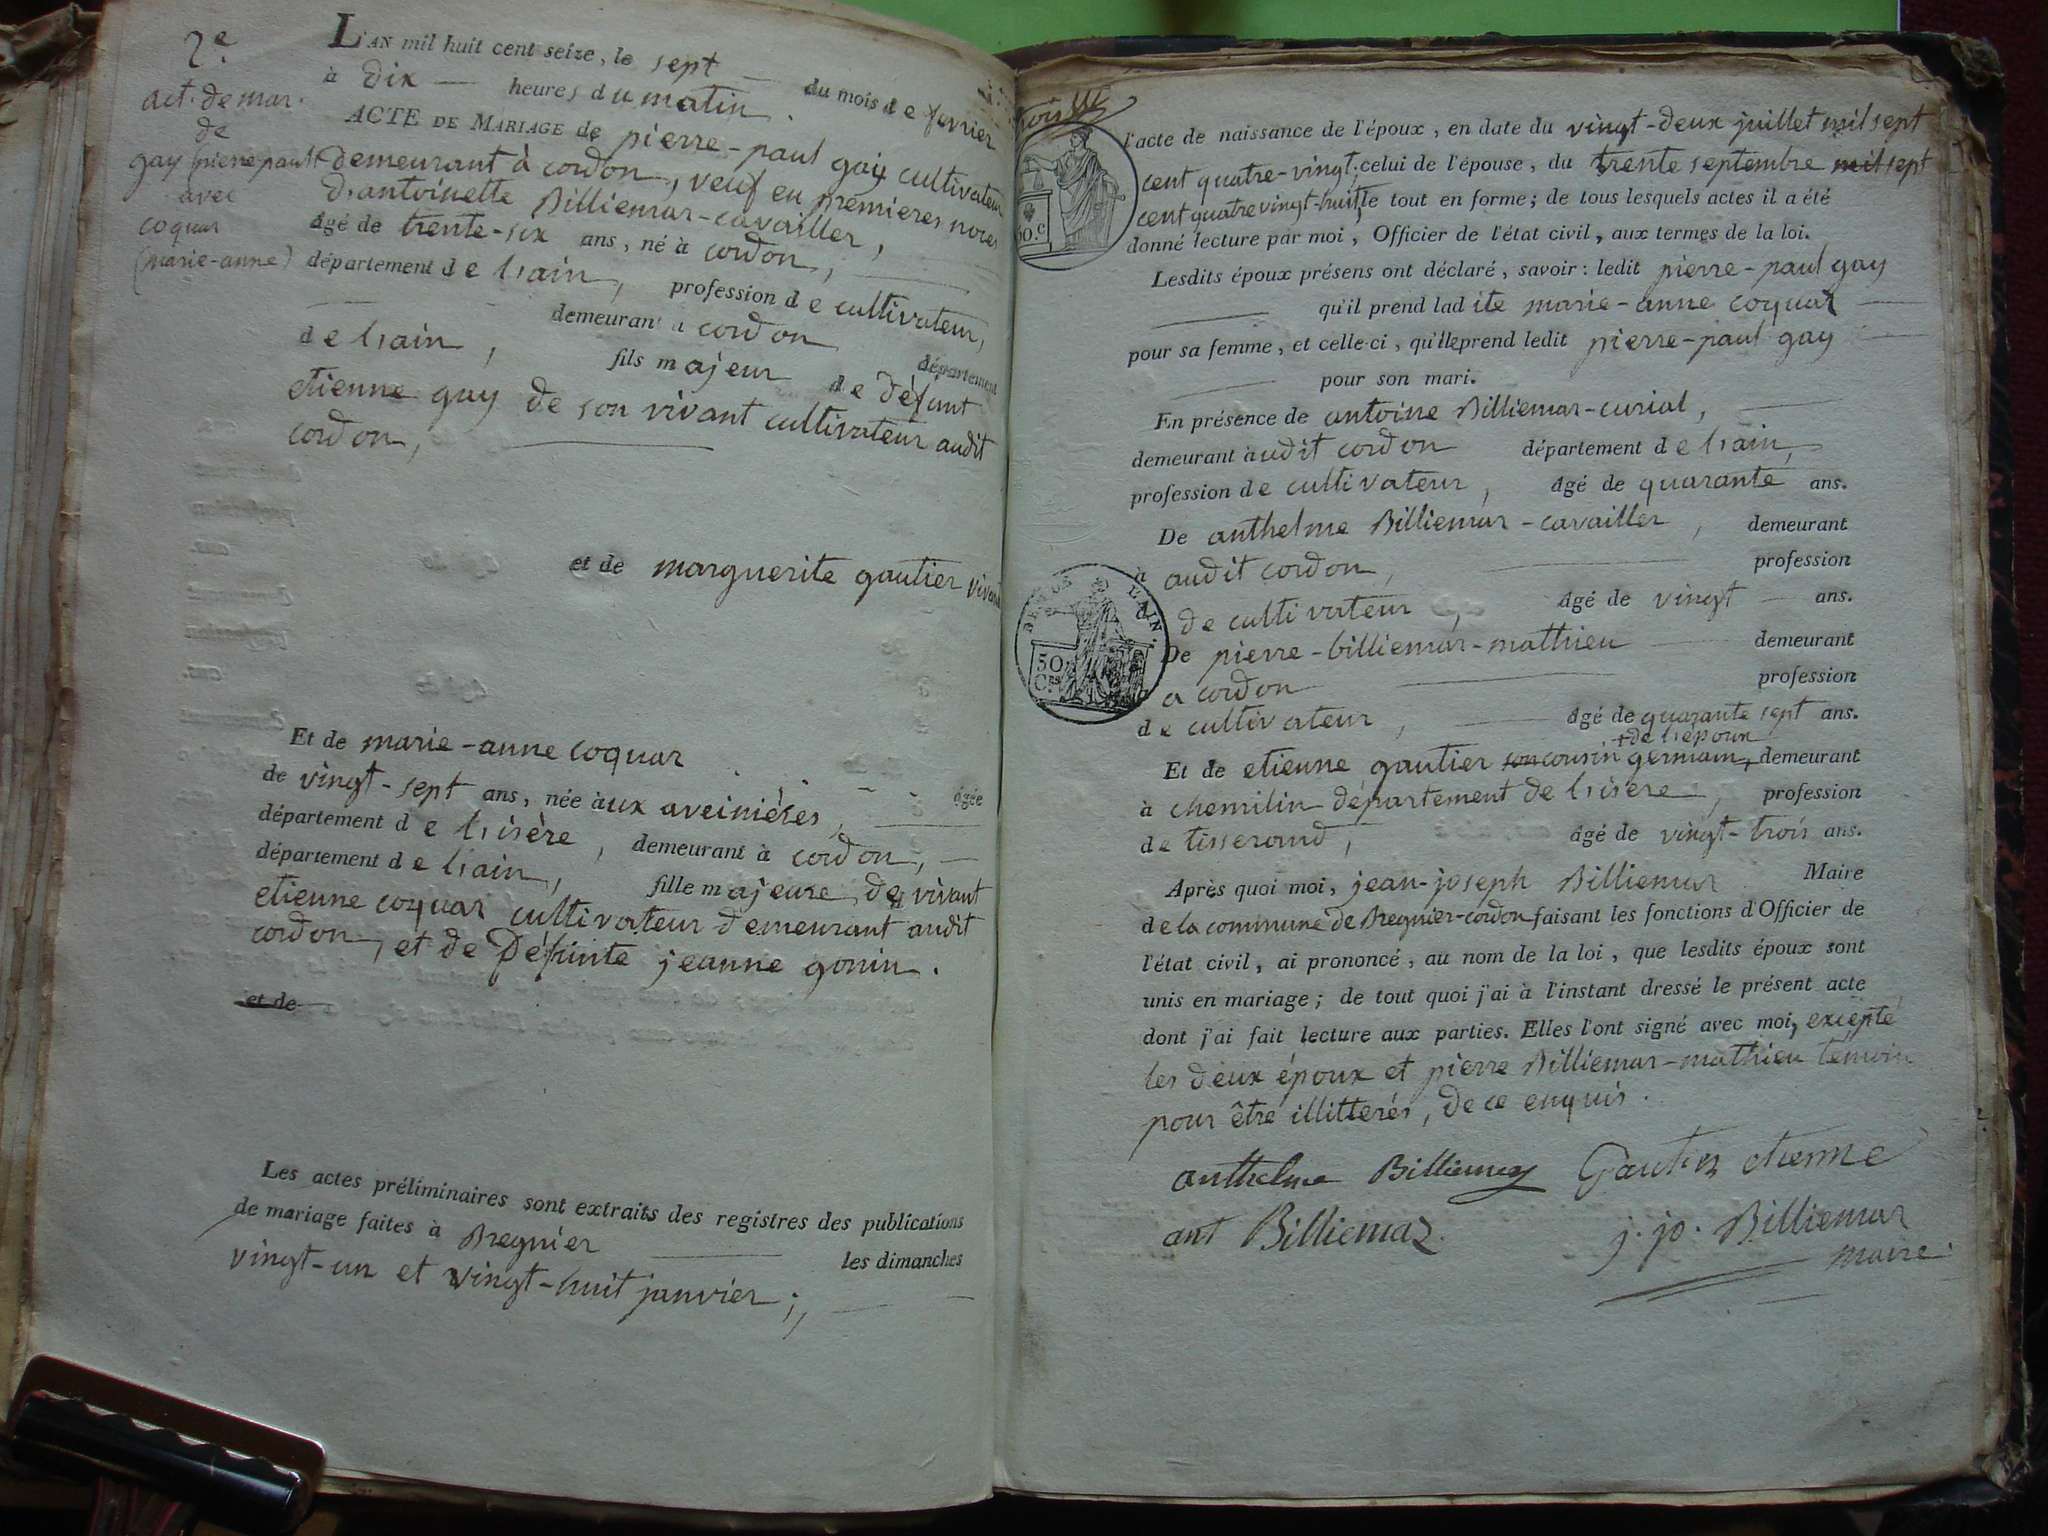 2.e
act. de mar.
de
gay (pierre paul)
avec
coquar
(marie-anne)
L'AN mil huit cent seize, le sept du mois de fevrier
à dix heures du matin.
ACTE DE MARIAGE de pierre-paul gay cultivateur
demeurant à cordon, veuf en premieres noces
d'antoinette Billiemar-cavailler,
âgé de trente-six ans, né à cordon,
département de l'ain, profession de cultivateur,
demeurant à cordon département
de l'ain, fils majeur de défunt
etienne gay de son vivant cultivateur audit
cordon,
et de marguerite gautier
Et de marie-anne coquar âgée
de vingt-sept ans, née à aux aveinières,
département de l'isère, demeurant à cordon,
département de l'ain, fille majeure de vivant
etienne coquar cultivateur demeurant audit
cordon, et de Défunte jeanne gonin.
et de
Les actes préliminaires sont extraits des registres des publications
de mariage faites à Bregnier les dimanches
vingt-un et vingt-huit janvier;
l'acte de naissance de l'époux, en date du vingt-deux juillet mil sept
cent quatre-vingt; celui de l'épouse, du trente septembre mil sept
cent quatre vingt-huit, le tout en forme; de tous lesquels actes il a été
donné lecture par moi, Officier de l'état civil, aux termes de la loi.
Lesdits époux présens ont déclaré, savoir: ledit pierre-paul gay
qu'il prend ladite marie-anne coquar
pour sa femme, et celle-ci, qu'elle prend ledit pierre-paul gay
pour son mari.
En présence de antoine Billiemar-curial,
demeurant audit cordon département de l'ain,
profession de cultivateur, âgé de quarante ans.
De anthelme Billiemar-cavailler, demeurant
à audit cordon, profession
de cultivateur, âgé de vingt ans.
De pierre-billiemar-mathieu demeurant
a cordon profession
de cultivateur, âgé de quarante sept ans.
+ de l'epoux
Et de etienne gautier son cousin germain, demeurant
à chemilin département de l'isere, profession
de tisserand, âgé de vingt-trois ans.
Après quoi moi, jean-joseph Billiemar Maire
de la commune de Bregnier-cordon faisant les fonctions d'Officier de
l'état civil, ai prononcé, au nom de la loi, que lesdits époux sont
unis en mariage; de tout quoi j'ai à l'instant dressé le présent acte
dont j'ai fait lecture aux parties. Elles l'ont signé avec moi, excepté
les deux époux et pierre Billiemar-mathieu témoin
pour être illitterés, de ce enquis.
anthelme Billiemaz Gautier etienne
ant Billiemaz. j. jo. Billiemar
maire.
50.
L'AIN.
50
C.ES